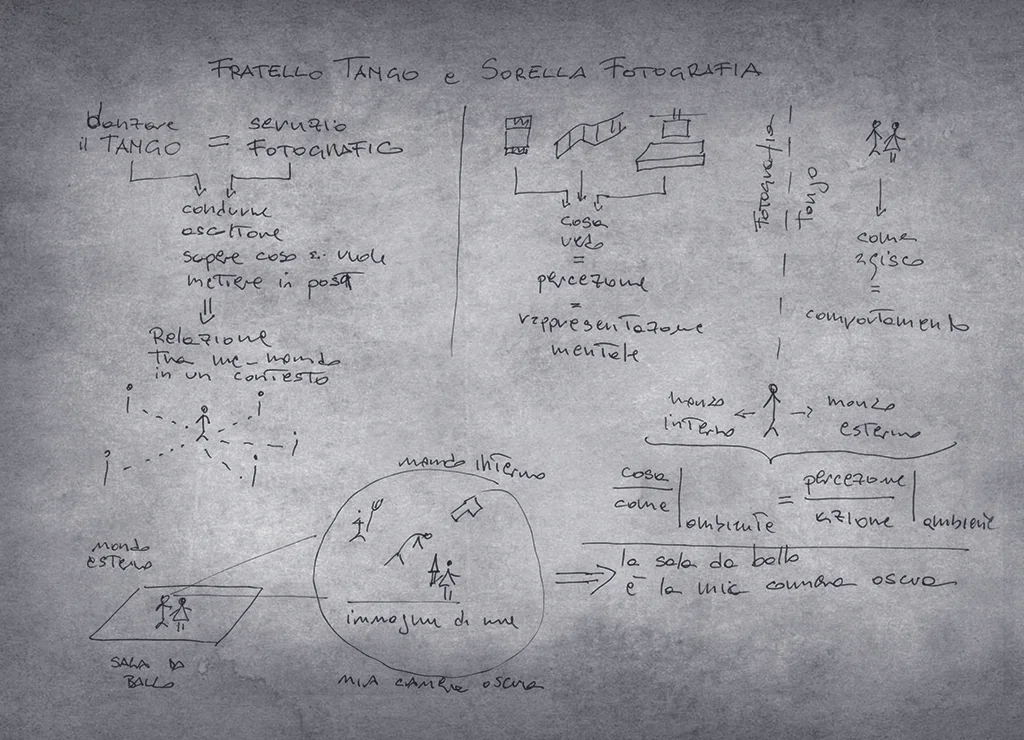 FRATELLO TANGO e SORELLA FOTOGRAFIA
danzare
il TANGO = servizio
FOTOGRAFICO
condurre
ascoltare
sapere cosa si vuole
mettere in posa
⇓
Relazione
tra me-mondo
in un contesto
cosa
vedo
=
percezione
=
rappresentazione
mentale
Fotografia
Tango
come
agisco
=
comportamento
mondo
interno
mondo
esterno
cosa
come
ambiente
=
percezione
azione
ambiente
mondo interno
mondo
esterno
immagini di me
SALA DA
BALLO
MIA CAMERA OSCURA
la sala da ballo
è la mia camera oscura